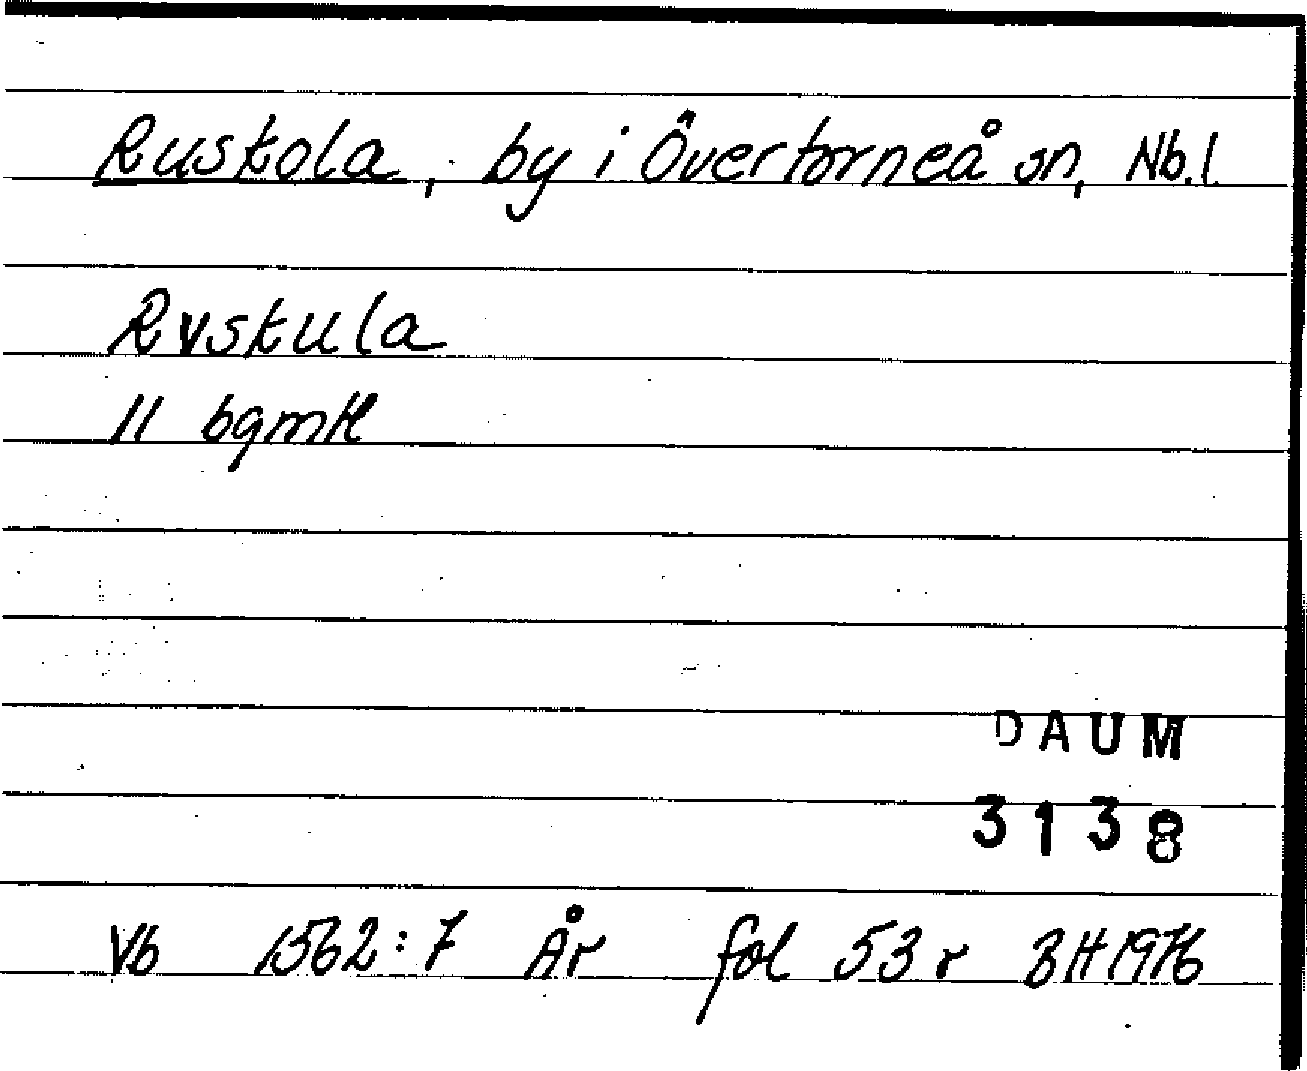 Ruskola, by i Övertorneå sn, Nb.l.
Rvskula
11 bgmtl
DAUM
3138
Vb 1562:7 År fol 53 r BH 1976